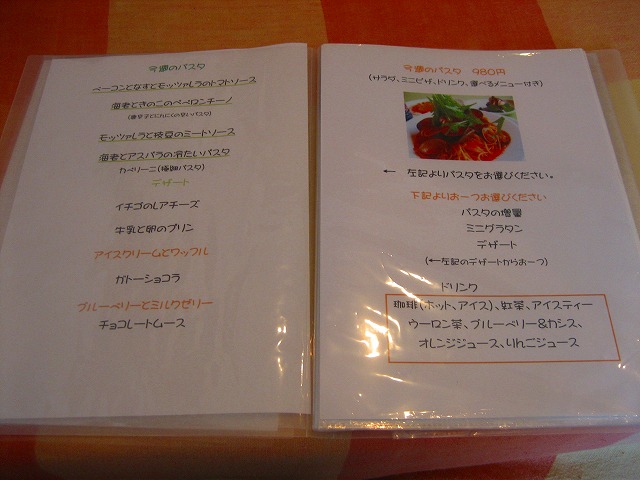 今週のパスタ
ベーコンとなすとモッツァレラのトマトソース
海老ときのこのペペロンチーノ
(唐辛子とにんにくの辛いパスタ)
モッツァレラと枝豆のミートソース
海老とアスパラの冷たいパスタ
カペリーニ(極細パスタ)
デザート
イチゴのレアチーズ
牛乳と卵のプリン
アイスクリームとワッフル
ガトーショコラ
ブルーベリーとミルクゼリー
チョコレートムース
今週のパスタ 980円
(サラダ、ミニピザ、ドリンク、選べるメニュー付き)
← 左記よりパスタをお選びください。
下記よりお一つお選びください
パスタの増量
ミニグラタン
デザート
(←左記のデザートからお一つ)
ドリンク
珈琲(ホット、アイス)、紅茶、アイスティー
ウーロン茶、ブルーベリー&カシス、
オレンジジュース、りんごジュース